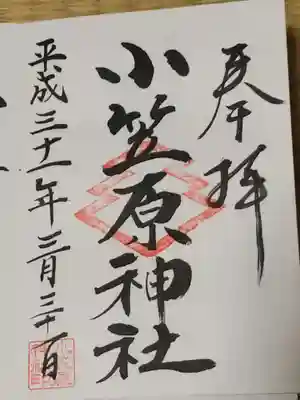 奉拝
小笠原神社
平成三十一年三月三十一日